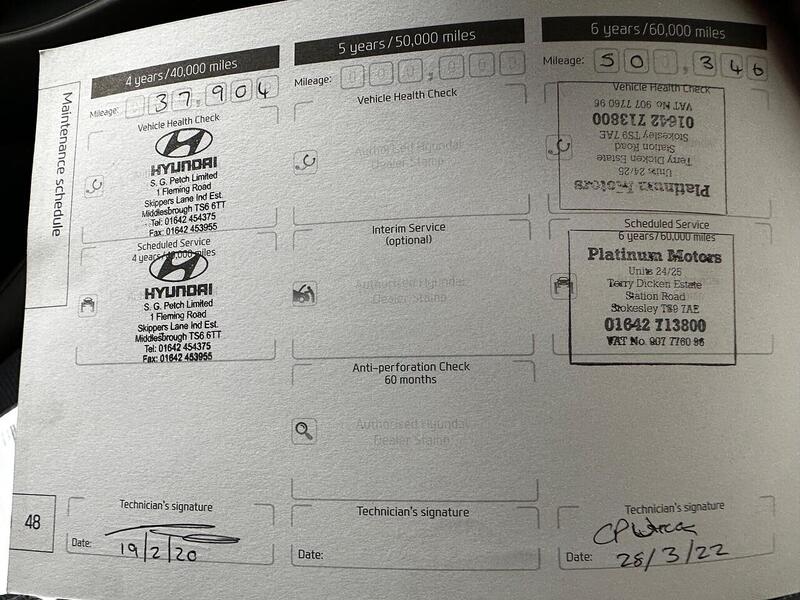 Maintenance schedule
48
4 years/40,000 miles
Mileage: 37,904
Vehicle Health Check
HYUNDAI
S. G. Petch Limited
1 Fleming Road
Skippers Lane Ind Est.
Middlesbrough TS6 6TT
Tel: 01642 454375
Fax: 01642 453955
Scheduled Service
4 years/40,000 miles
HYUNDAI
S. G. Petch Limited
1 Fleming Road
Skippers Lane Ind Est.
Middlesbrough TS6 6TT
Tel: 01642 454375
Fax: 01642 453955
Technician's signature
Date: 19/2/20
5 years/50,000 miles
Mileage: 000,000
Vehicle Health Check
Authorised Hyundai
Dealer Stamp
Interim Service
(optional)
Authorised Hyundai
Dealer Stamp
Anti-perforation Check
60 months
Authorised Hyundai
Dealer Stamp
Technician's signature
Date:
6 years/60,000 miles
Mileage: 50,346
Vehicle Health Check
Platinum Motors
Units 24/25
Terry Dicken Estate
Station Road
Stokesley TS9 7AE
01642 713800
VAT No. 907 7760 96
Scheduled Service
6 years/60,000 miles
Platinum Motors
Units 24/25
Terry Dicken Estate
Station Road
Stokesley TS9 7AE
01642 713800
VAT No. 907 7760 96
Technician's signature
Date: 28/3/22